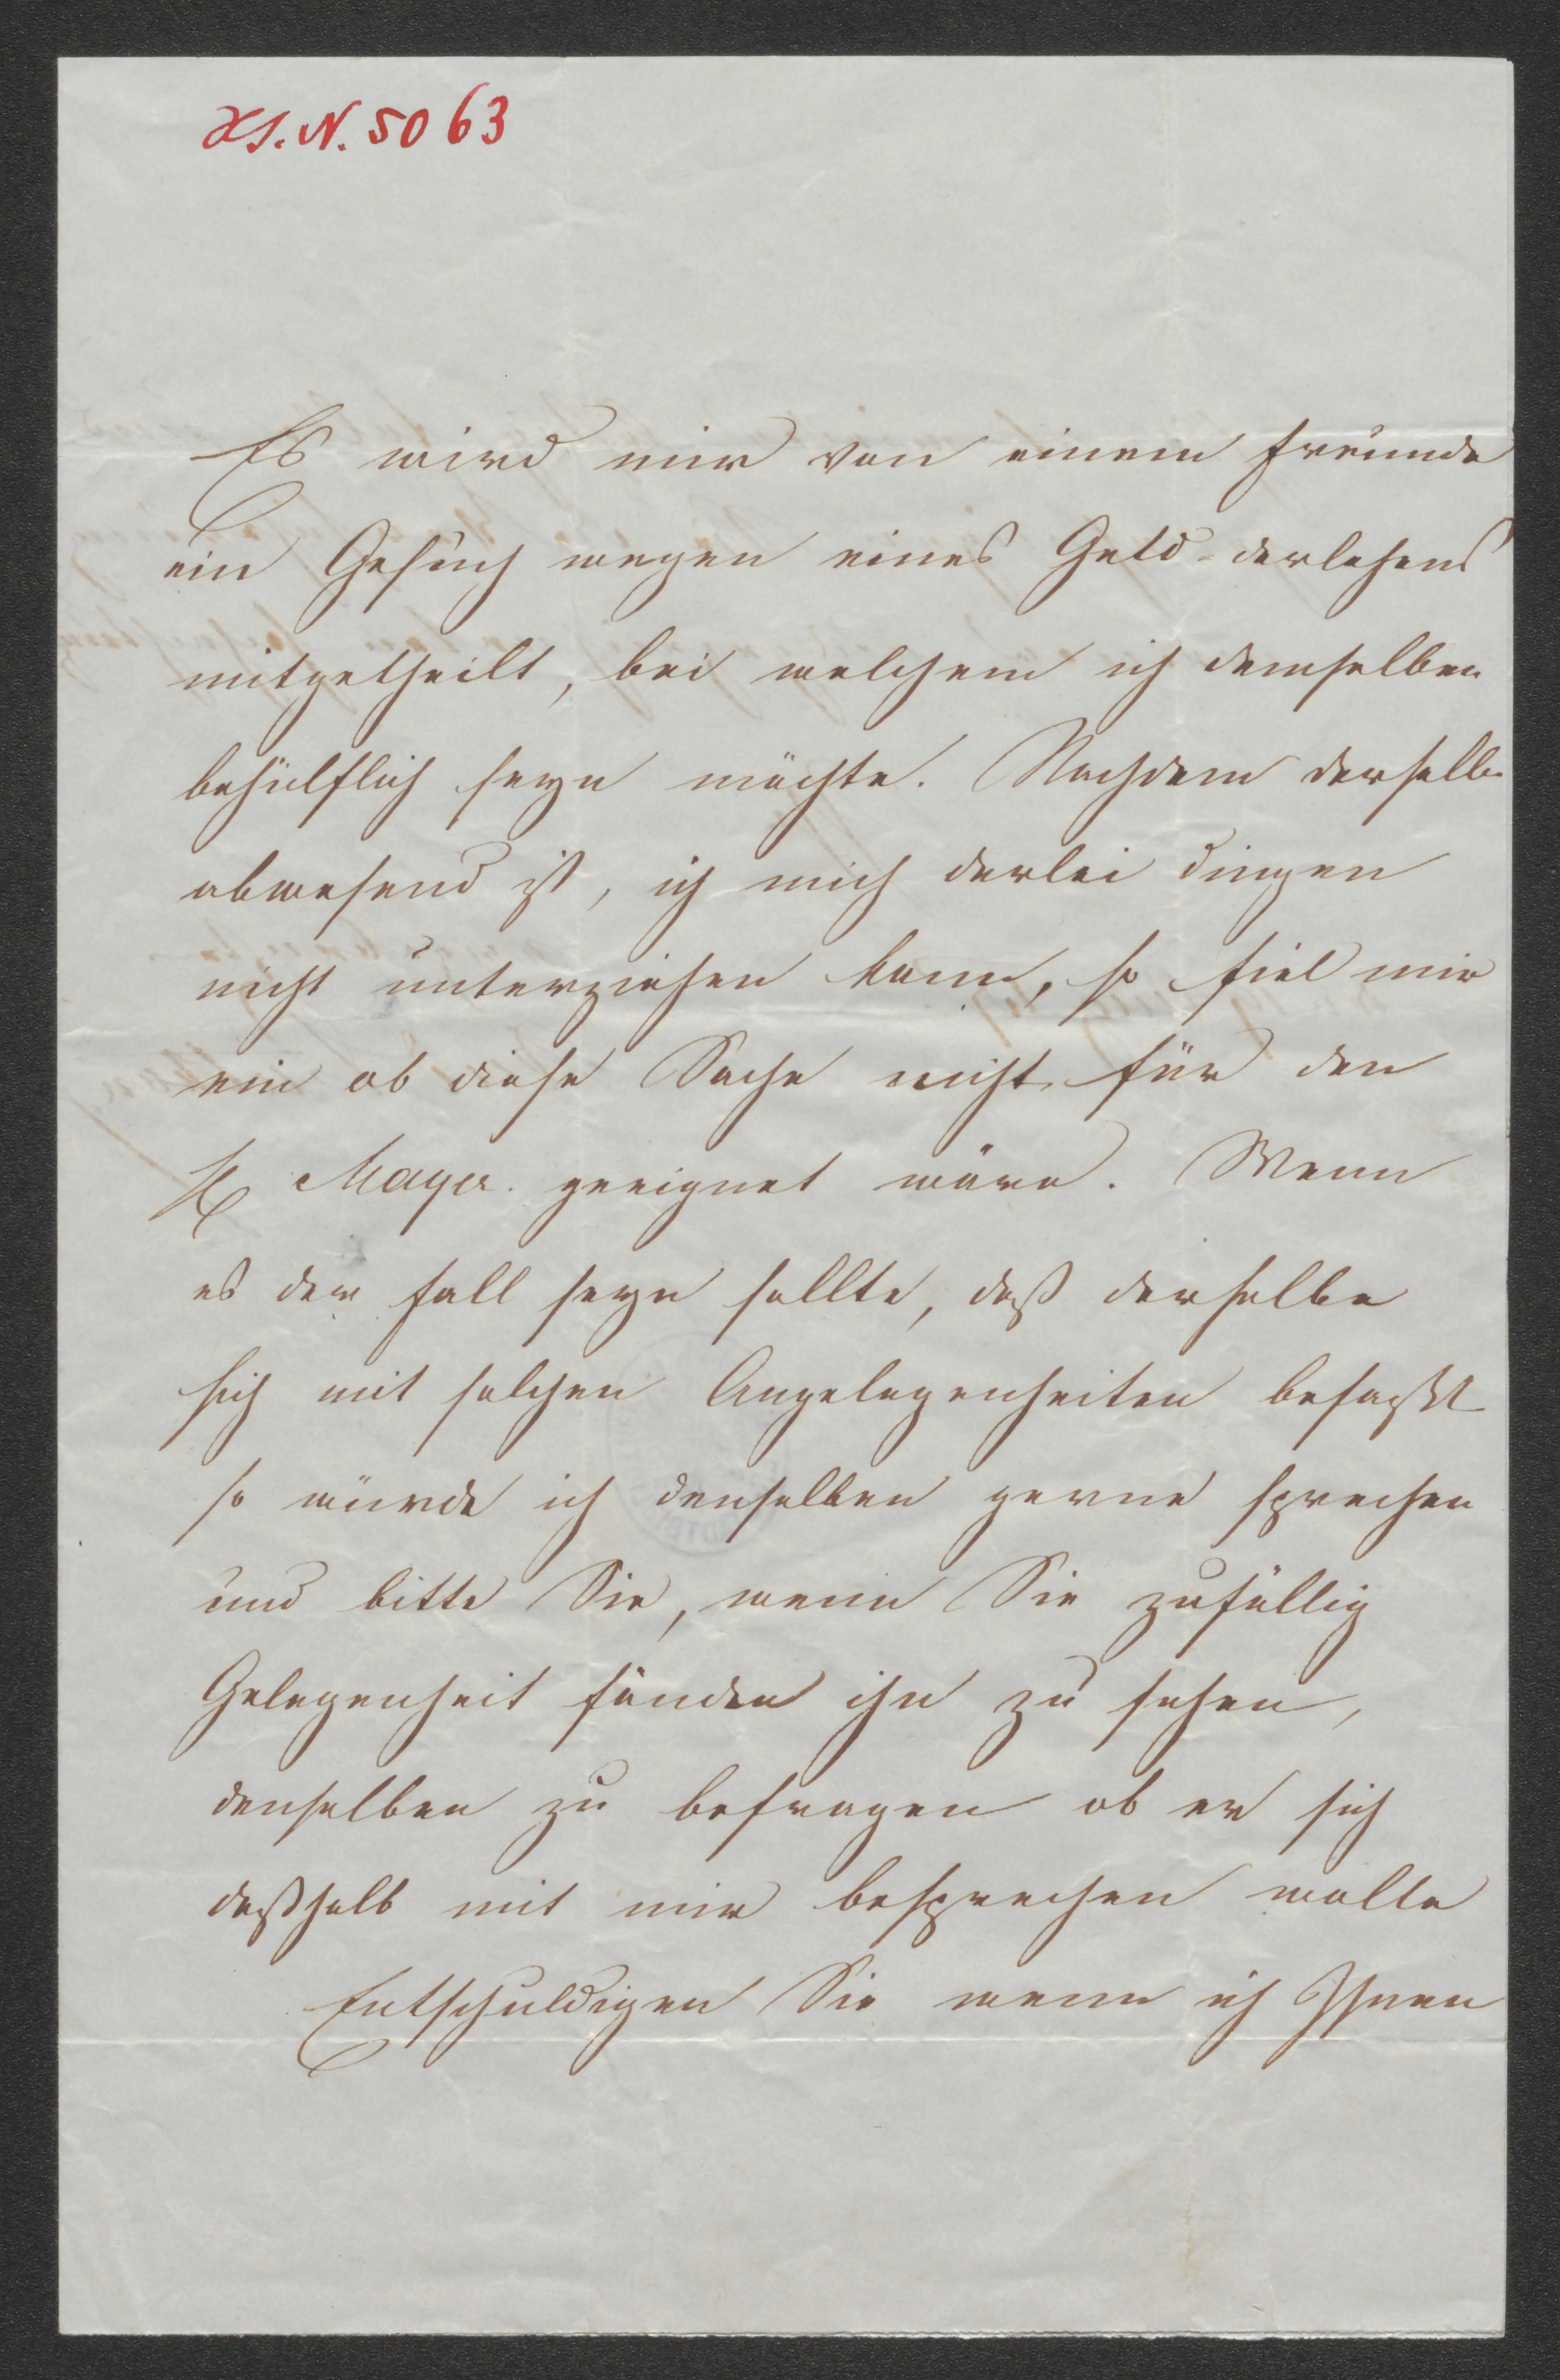 H.I.N. 5063
Es wird mir von einem Freunde
ein Gesuch wegen eines Geld-darlehens
mitgetheilt, bei welchem ich demselben
behülflich seyn möchte. Nachdem derselbe
abwesend ist, ich mich derlei Dingen
nicht unterziehen kann, so fiel mir
ein ob diese Sache nicht für den
H Mayer. geeignet wäre. Wenn
es der Fall seyn sollte, daß derselbe
sich mit solchen Angelegenheiten befaßt
so würde ich denselben gerne sprechen
und bitte Sie, wenn Sie zufällig
Gelegenheit fänden ihn zu sehen,
denselben zu befragen ob er sich
deßhalb mit mir besprechen wolle
Entschuldigen Sie wenn ich Ihnen